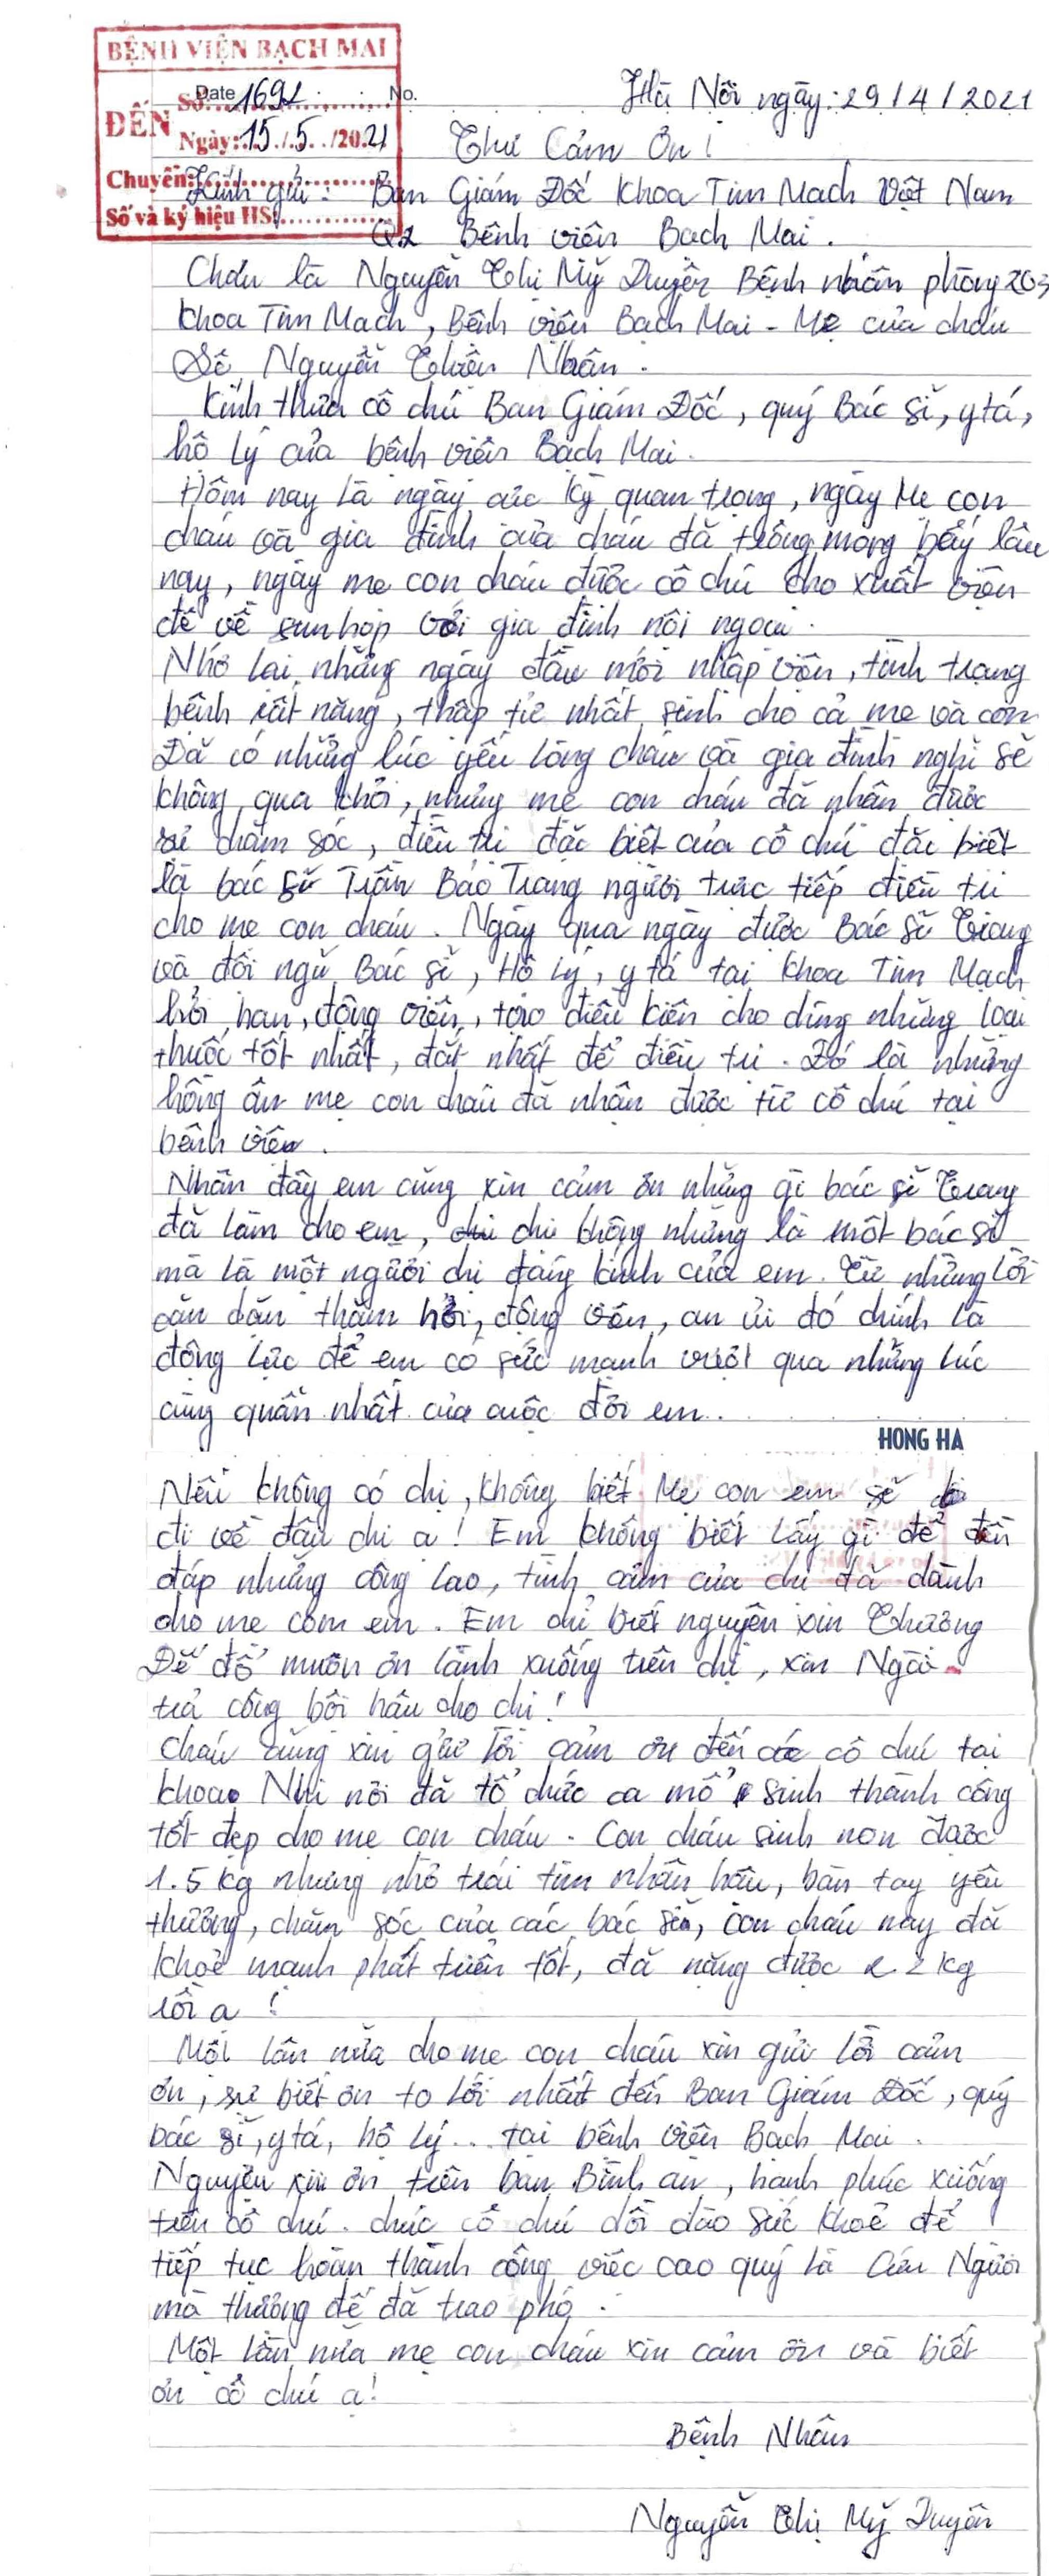 BỆNH VIỆN BẠCH MAI
Date No.
Số: 1691
ĐẾN
Ngày: 15/5/2021
Chuyển:
Số và ký hiệu HS:
Hà Nội ngày: 29/4/2021
Thư Cảm Ơn!
Kính gửi: Ban Giám Đốc Khoa Tim Mạch Việt Nam
Q2 Bệnh viện Bạch Mai.
Cháu là Nguyễn Thị Mỹ Duyên Bệnh nhân phòng 203
Khoa Tim Mạch, Bệnh viện Bạch Mai - Mẹ của cháu
Nguyễn Thiên Nhân.
Kính thưa cô chú Ban Giám Đốc, quý Bác sĩ, y tá,
hộ lý của bệnh viện Bạch Mai.
Hôm nay là ngày cực kỳ quan trọng, ngày Mẹ con
cháu và gia đình của cháu đã trông mong bấy lâu
nay, ngày mẹ con cháu được cô chú cho xuất viện
để về sum họp với gia đình nội ngoại.
Nhớ lại những ngày đầu mới nhập viện, tình trạng
bệnh rất nặng, thập tử nhất sinh cho cả mẹ và con
Đã có những lúc yếu lòng cháu và gia đình nghĩ sẽ
không qua khỏi, nhưng mẹ con cháu đã nhận được
sự chăm sóc, điều trị đặc biệt của cô chú đặc biệt
là bác sĩ Trần Bảo Trang người trực tiếp điều trị
cho mẹ con cháu. Ngày qua ngày được Bác sĩ Trang
và đội ngũ Bác sĩ, Hộ lý, y tá tại Khoa Tim Mạch
hỏi han, động viên, tạo điều kiện cho dùng những loại
thuốc tốt nhất, đắt nhất để điều trị. Đó là những
hồng ân mẹ con cháu đã nhận được từ cô chú tại
bệnh viện.
Nhân đây em cũng xin cảm ơn những gì bác sĩ Trang
đã làm cho em, chị không những là một bác sĩ
mà là một người chị đáng kính của em. Từ những lời
căn dặn thăm hỏi, động viên, an ủi đó chính là
động lực để em có sức mạnh vượt qua những lúc
cùng quẫn nhất của cuộc đời em.
HONG HA
Nếu không có chị, không biết Mẹ con em sẽ
đi về đâu chị ạ! Em không biết lấy gì để đền
đáp những công lao, tình cảm của chị đã dành
cho mẹ con em. Em chỉ biết nguyện xin Thượng
Đế đổ muôn ơn lành xuống trên chị, xin Ngài
trả công bội hậu cho chị!
Cháu cũng xin gửi lời cảm ơn đến các cô chú tại
khoa Nhi nơi đã tổ chức ca mổ sinh thành công
tốt đẹp cho mẹ con cháu. Con cháu sinh non được
1.5 kg nhưng nhờ trái tim nhân hậu, bàn tay yêu
thương, chăm sóc của các bác sĩ, con cháu nay đã
khoẻ mạnh phát triển tốt, đã nặng được 2.2 kg
rồi ạ!
Một lần nữa cho mẹ con cháu xin gửi lời cảm
ơn, sự biết ơn to lớn nhất đến Ban Giám Đốc, quý
bác sĩ, y tá, hộ lý... tại bệnh viện Bạch Mai.
Nguyện xin ơn trên ban Bình an, hạnh phúc xuống
trên cô chú. chúc cô chú dồi dào sức khoẻ để
tiếp tục hoàn thành công việc cao quý là Cứu Người
mà thượng đế đã trao phó.
Một lần nữa mẹ con cháu xin cảm ơn và biết
ơn cô chú ạ!
Bệnh Nhân
Nguyễn Thị Mỹ Duyên